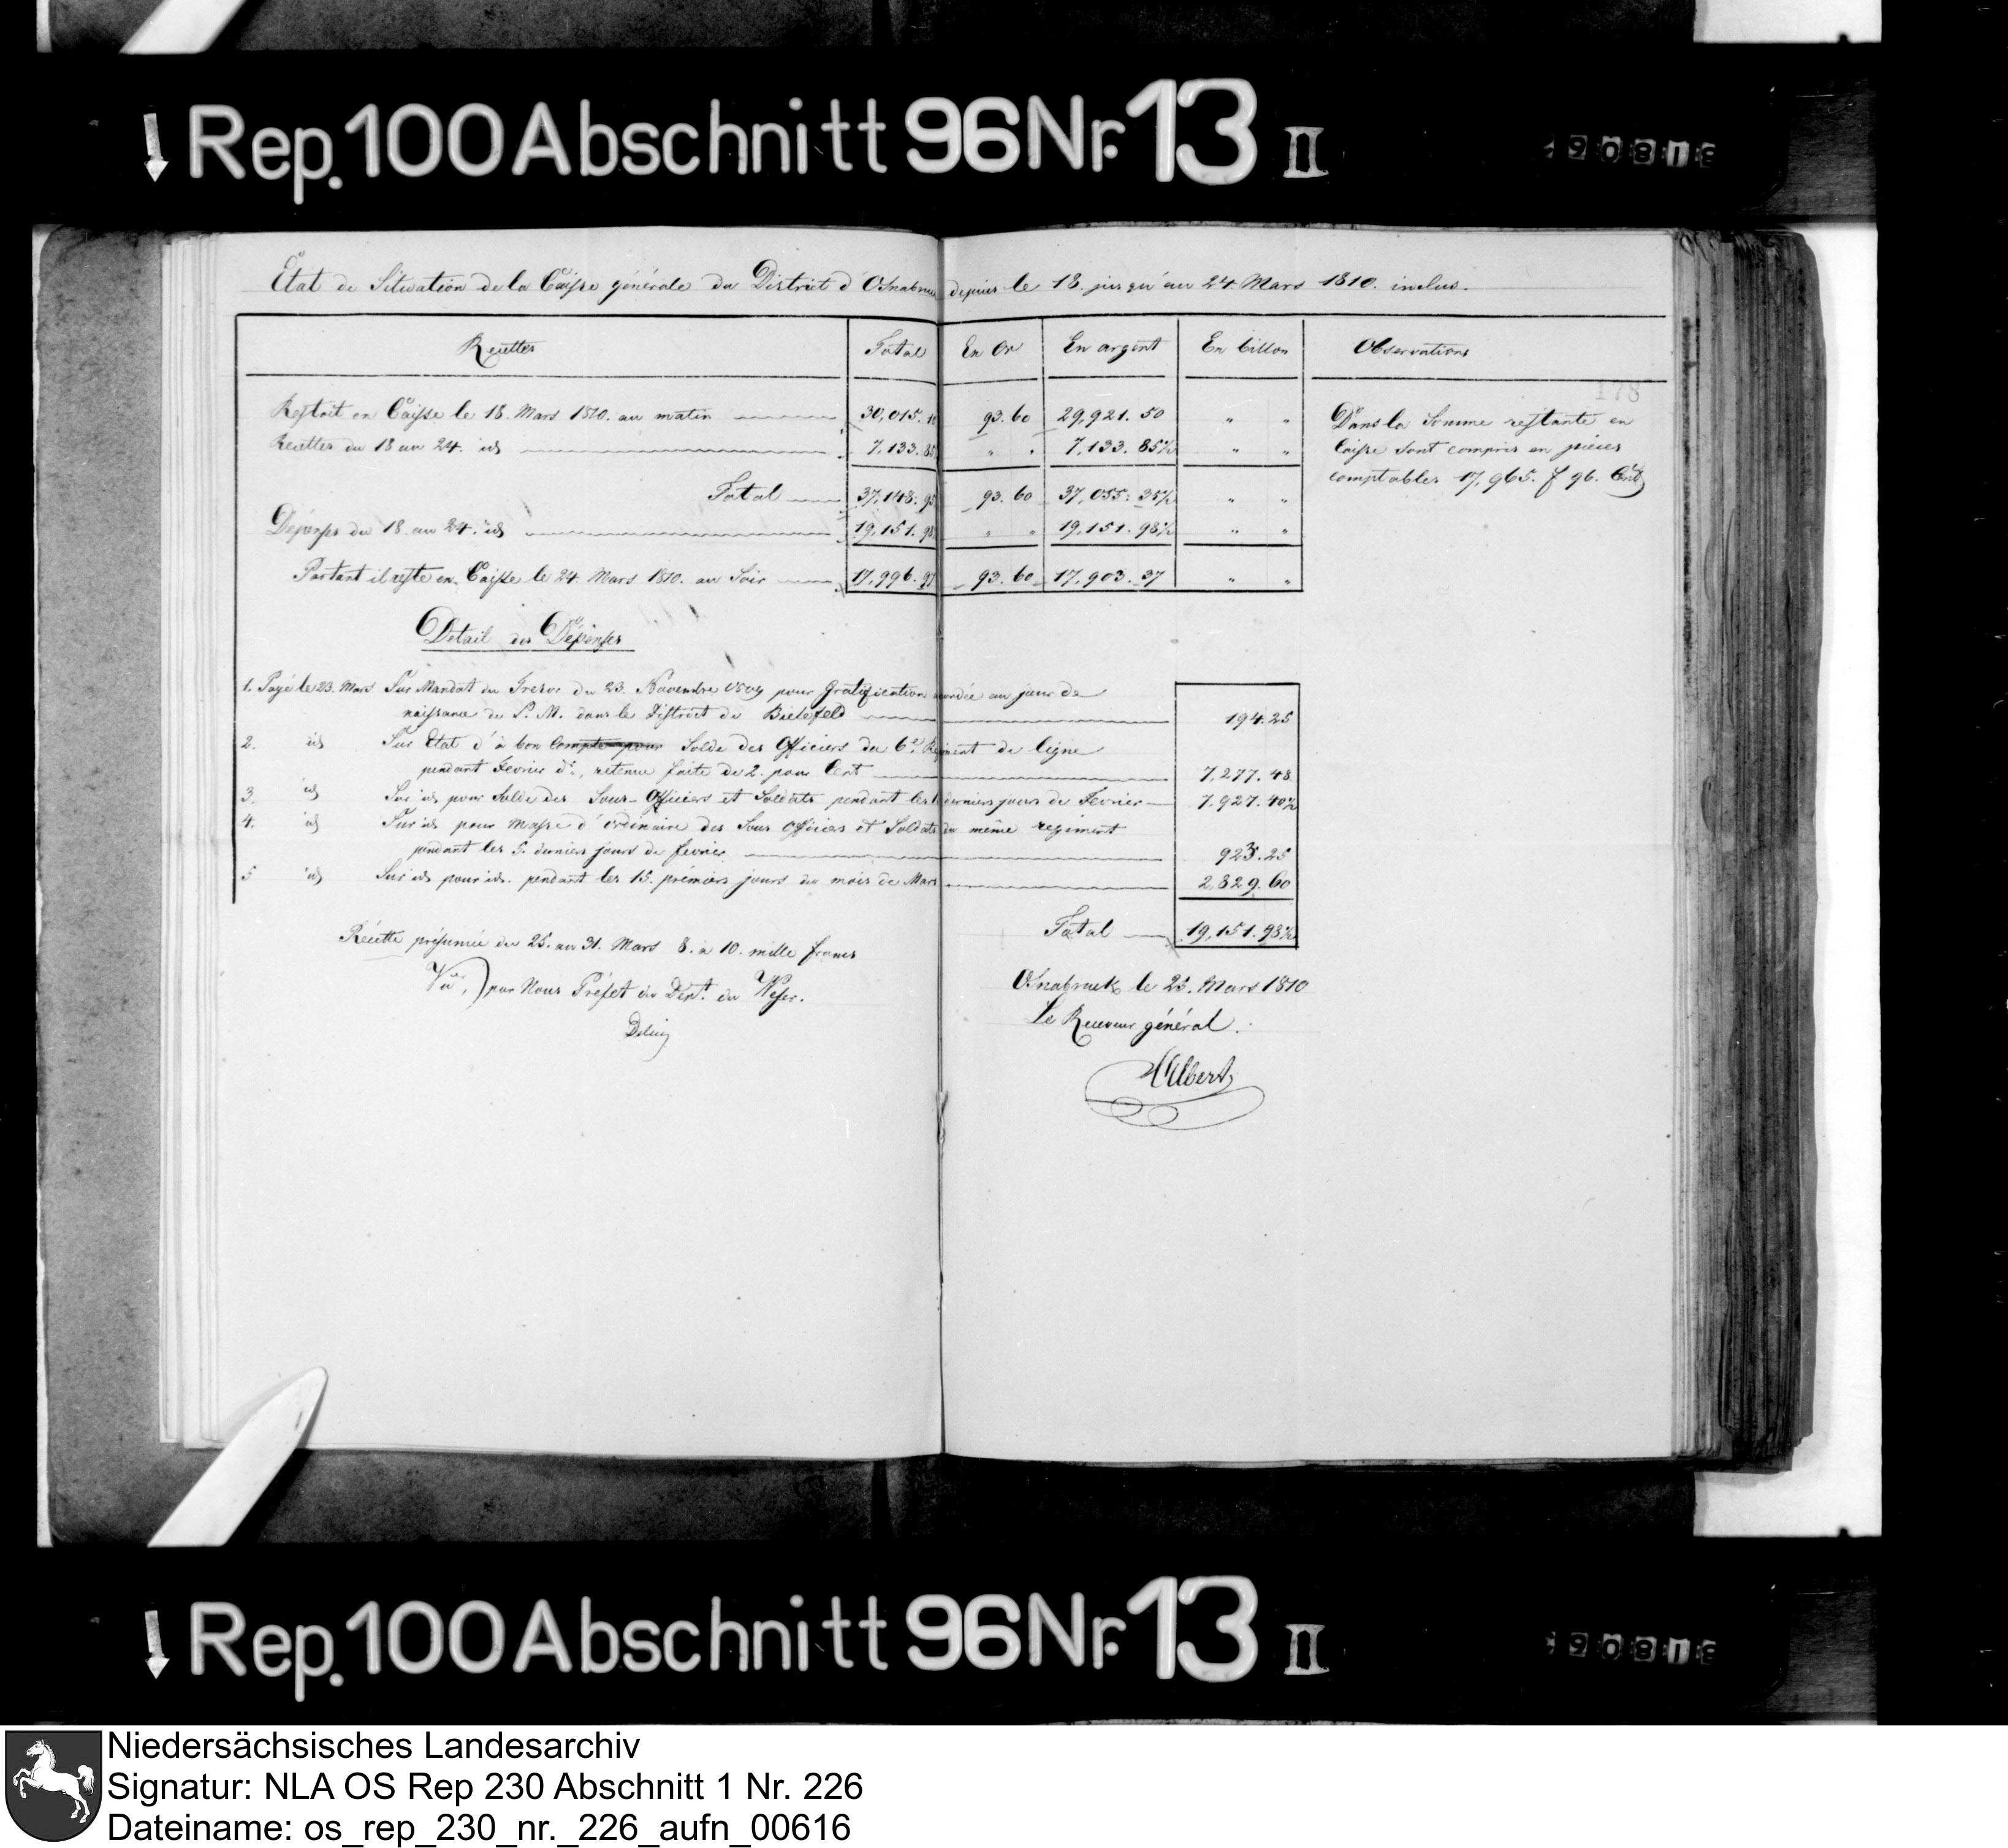 Rep. 100 Abschnitt 96 Nr. 13 II
Etat de Situation de la Caisse générale du District d'Osnabruc depuis le 18. jusqu'au 24. Mars 1810. inclus.
Recettes Total En Or En argent En billon Observations
178
Restoit en Caisse le 18. Mars 1810. au matin 30,015. 10 93. 60 29,921. 50 " "
Recettes du 18 au 24. id 7,133. 85 " " 7,133. 85½ " "
Total 37,148. 95 93. 60 37,055. 35½ " "
Dépenses du 18. au 24. id 19,151. 98 " " 19,151. 98½ " "
Partant il reste en Caisse le 24. Mars 1810. au Soir 17,996. 97 93. 60 17,903. 37 " "
Dans la Somme restante en
Caisse sont compris en pièces
comptables 17,965. f 96. Cent
Detail des Dépenses
1. Payé le 23. Mars Sur Mandat du Tresor du 23. Novembre 1809 pour Gratification accordée au jour de
naissance de S. M. dans le District de Bielefeld 194. 25
2. id Sur Etat d'à bon Compte pour Solde des Officiers du 6e Regiment de ligne
pendant Fevrier dr., retenue faite de 2. pour Cent 7,277. 48
3. id Sur id pour Solde des Sous-Officiers et Soldats pendant les derniers jours de Fevrier 7,927. 40½
4. id Sur id pour Masse d'ordinaire des Sous Officiers et Soldats du même regiment
pendant les 5. derniers jours de fevrier 923. 25
5 id Sur id pour id. pendant les 15. prémiers jours du mois de Mars 2,829. 60
Total 19,151. 98½
Récette présumée du 25. au 31. Mars 8. à 10. mille francs
Vu, par Nous Préfet du Dépt. du Weser.
Delius
Osnabruck le 25. Mars 1810
Le Receveur général.
Albert
Rep. 100 Abschnitt 96 Nr. 13 II
Niedersächsisches Landesarchiv
Signatur: NLA OS Rep 230 Abschnitt 1 Nr. 226
Dateiname: os_rep_230_nr._226_aufn_00616